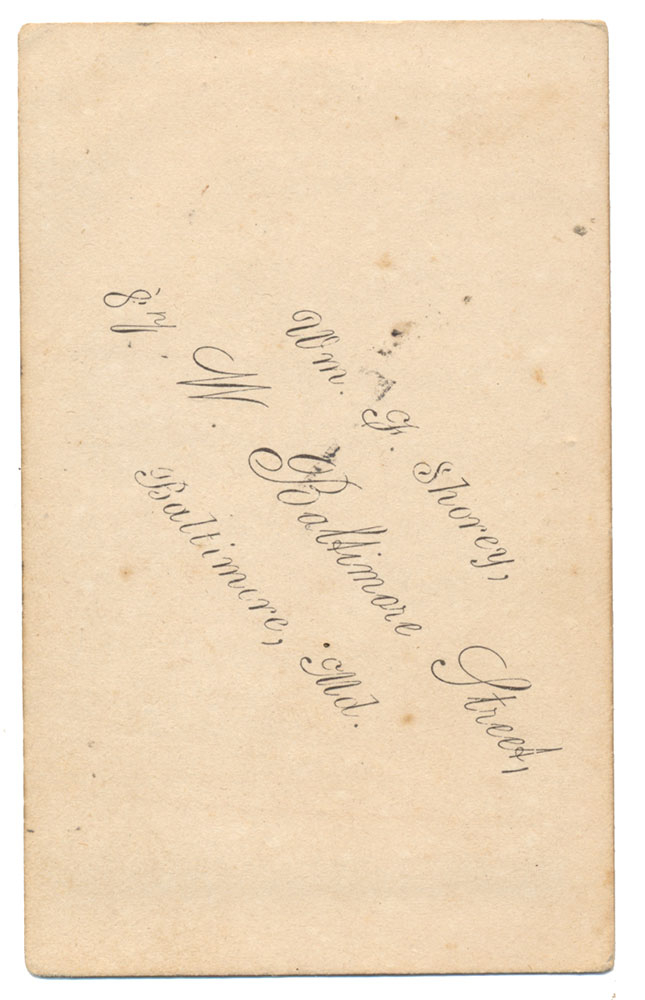 Wm. F. Shorey,
87. W Baltimore Street,
Baltimore, Md.